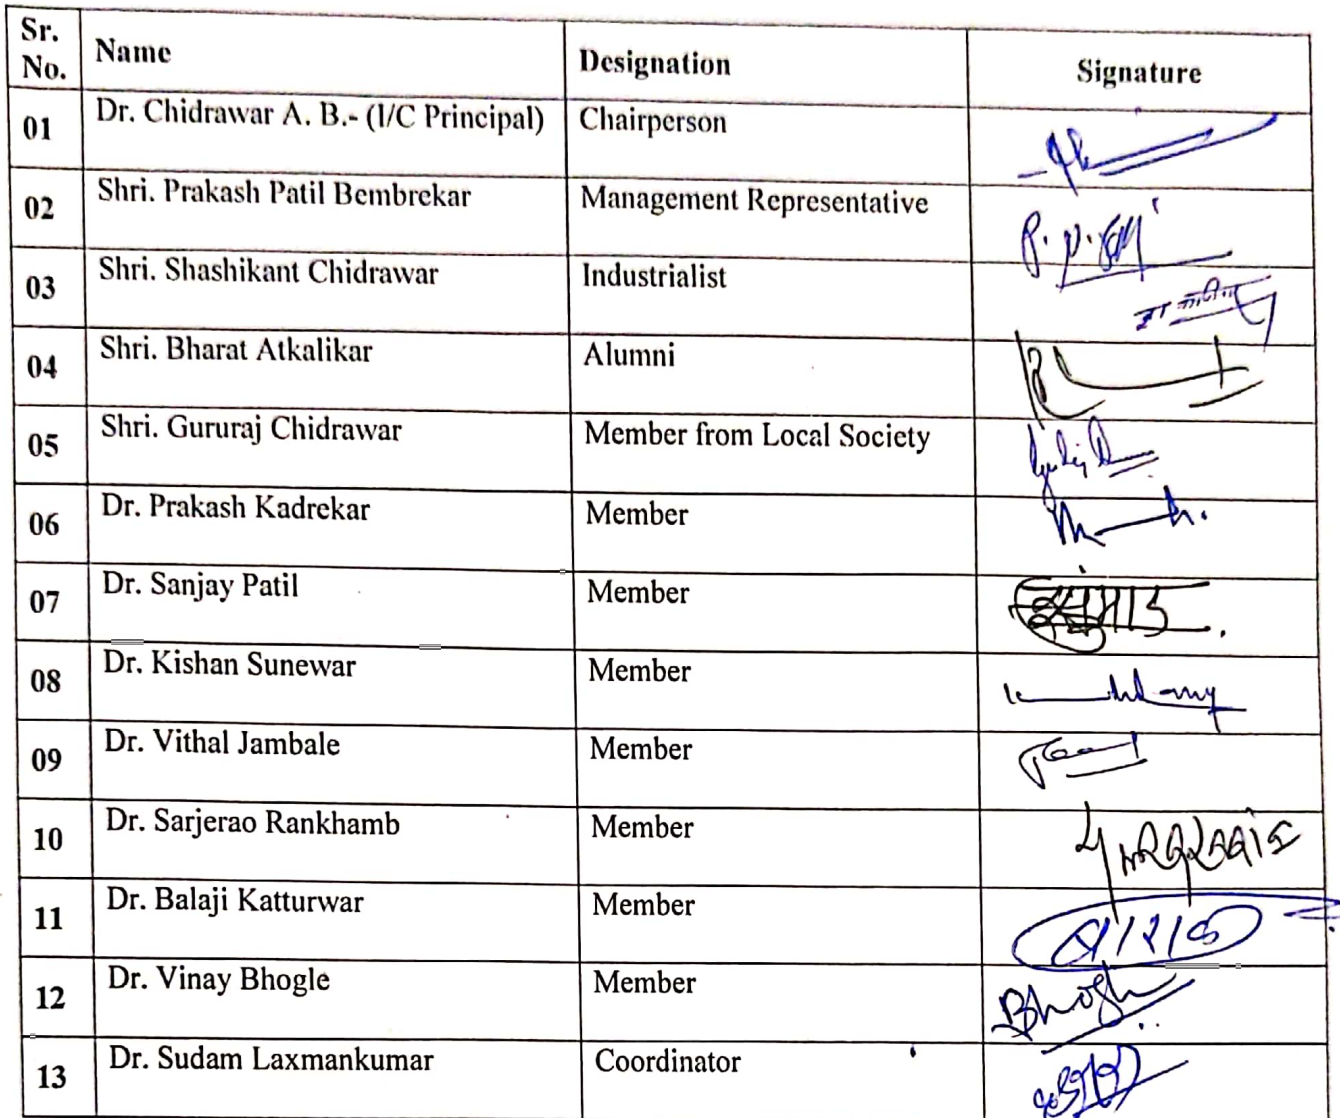 Sr. No. Name Designation Signature
01 Dr. Chidrawar A. B.- (I/C Principal) Chairperson
02 Shri. Prakash Patil Bembrekar Management Representative
03 Shri. Shashikant Chidrawar Industrialist
04 Shri. Bharat Atkalikar Alumni
05 Shri. Gururaj Chidrawar Member from Local Society
06 Dr. Prakash Kadrekar Member
07 Dr. Sanjay Patil Member
08 Dr. Kishan Sunewar Member
09 Dr. Vithal Jambale Member
10 Dr. Sarjerao Rankhamb Member
11 Dr. Balaji Katturwar Member
12 Dr. Vinay Bhogle Member
13 Dr. Sudam Laxmankumar Coordinator